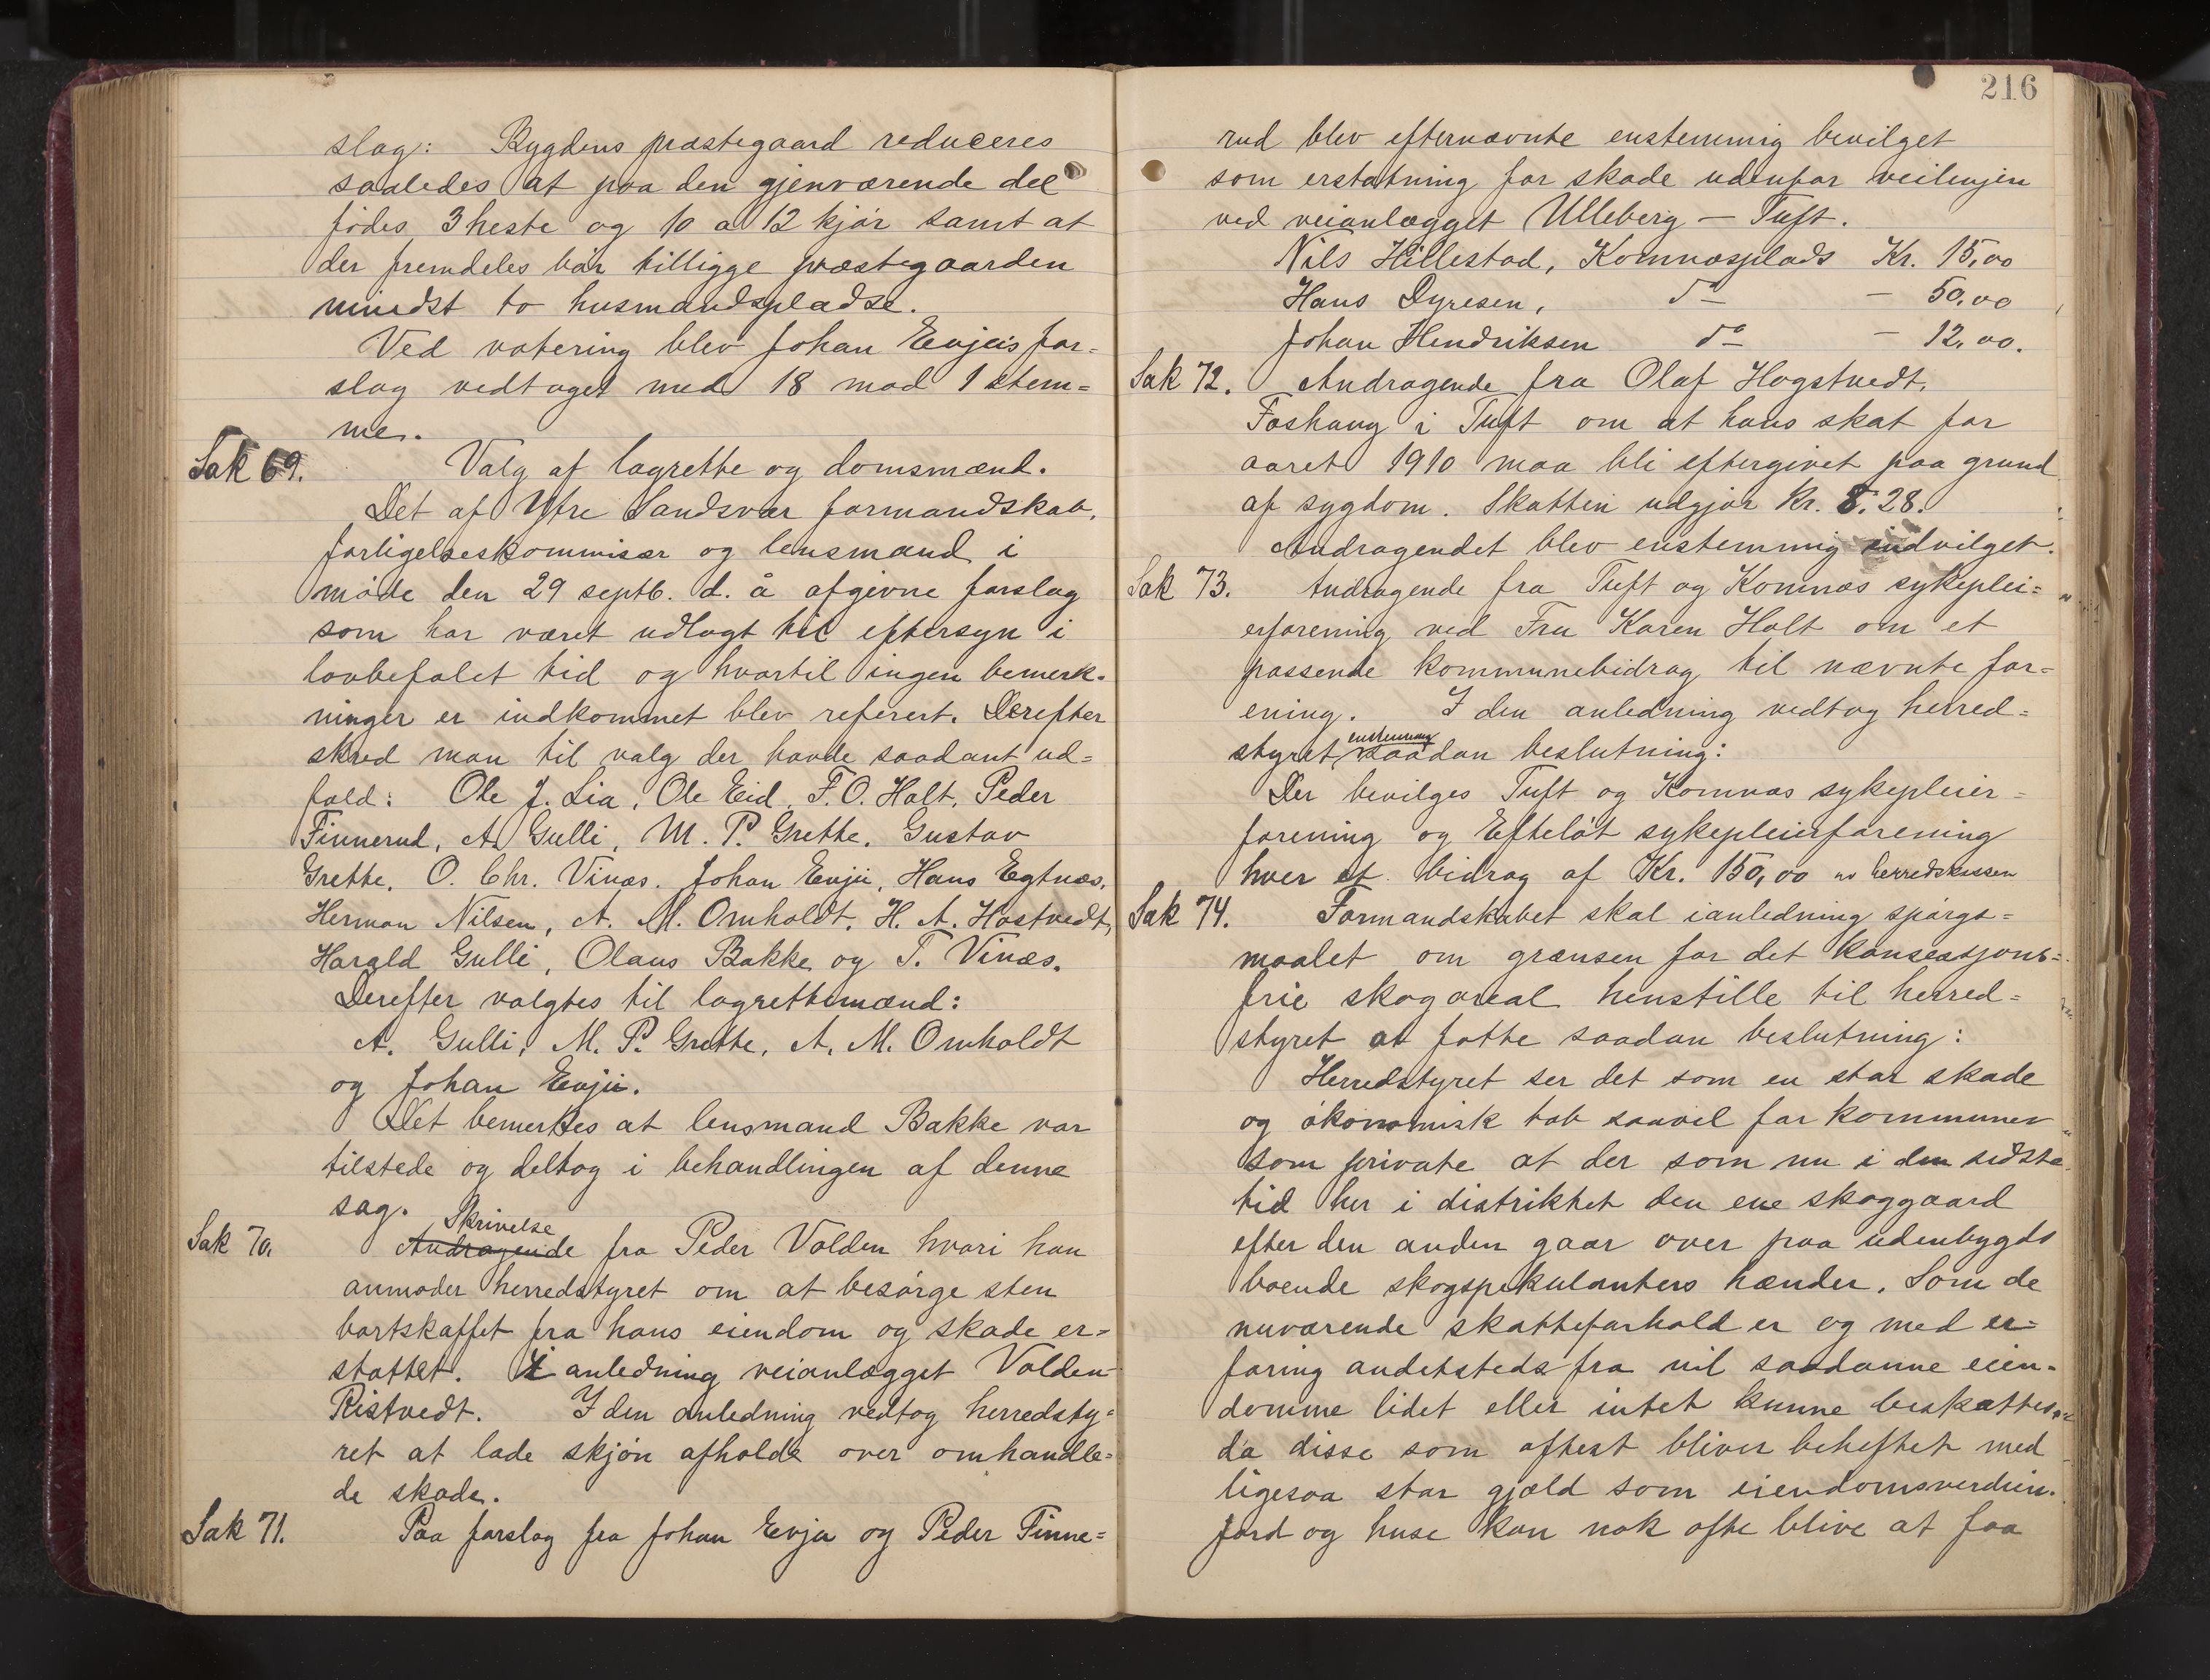 slag: Bygdens præstegaard reduceres
saaledes at paa den gjenværende del
födes 3 heste og 10 a 12 kjör samt at
der fremdeles bör tilligge præstegaarden
mindst to husmandspladse.
Ved votering blev Johan Evjeis for-
slag vedtaget med 18 mod 1 stem-
me.
Sak 69. Valg af lagrette og domsmænd.
Det af Ytre Sandsvær formandskab,
forligelseskommisær og lensmand i
möde den 29 septb. d. å afgivne forslag
som har været udlagt til eftersyn i
lovbefalet tid og hvortil ingen bemerk-
ninger er indkommet blev referert. Derefter
skred man til valg der havde saadant ud-
fald: Ole J. Lia, Ole Eid, F. O. Holt, Peder
Finnerud, A. Gulli, M. P. Grette, Gustav
Grette, O. Chr. Vinæs. Johan Evju, Hans Egtnæs,
Herman Nilsen, A. M. Omholdt, H. A. Hostvedt,
Harald Gulli, Olaus Bakke og T. Vinæs.
Derefter valgtes til lagrettemænd:
A. Gulli, M. P. Grette, A. M. Omholdt
og Johan Evju.
Det bemerkes at lensmand Bakke var
tilstede og deltog i behandlingen af denne
sag. Skrivelse
Sak 70. Andragende fra Peder Volden hvori han
anmoder herredstyret om at besörge sten
bortskaffet fra hans eiendom og skade er-
stattet. I anledning veianlægget Volden-
Ristvedt. I den anledning vedtog herredsty-
ret at lade skjön afholde over omhandle-
de skade.
Sak 71. Paa forslag fra Johan Evju og Peder Finne-
216
rud blev efternævnte enstemmig bevilget
som erstatning for skade udenfor veilinjen
ved veianlægget Ulleberg — Tuft.
Nils Hillestad, Komnæsplads Kr. 15,00
Hans Dyresen, do — 50,00
Johan Hendriksen do — 12,00.
Sak 72. Andragende fra Olaf Hogstvedt,
Foshaug i Tuft om at hans skat for
aaret 1910 maa bli eftergivet paa grund
af sygdom. Skatten udgjör Kr. 8,28.
Andragendet blev enstemmig indvilget.
Sak 73. Andragende fra Tuft og Komnæs sykeplei-
erforening ved Fru Karen Holt om et
passende kommunebidrag til nævnte for-
ening. I den anledning vedtog herred-
enstemmig
styret saadan beslutning:
Der bevilges Tuft og Komnæs sykepleier-
forening og Eftelöt sykepleierforening
hver et bidrag af Kr. 150,00 av herredskassen
Sak 74. Formandskabet skal ianledning spörgs-
maalet om grænsen for det konsessjons-
frie skogareal henstille til herred-
styret at fatte saadan beslutning:
Herredstyret ser det som en stor skade
og ökonomisk tab saavel for kommunen
som private at der som nu i den sidste
tid her i distriktet den ene skoggaard
efter den anden gaar over paa udenbygds
boende skogspekulanters hænder. Som de
nuværende skatteforhold er og med er-
faring andetsteds fra vil saadanne eien-
domme lidet eller intet kunne beskattes
da disse som oftest bliver beheftet med
ligesaa stor gjæld som eiendomsverdien.
Jord og huse kan nok ofte blive at faa